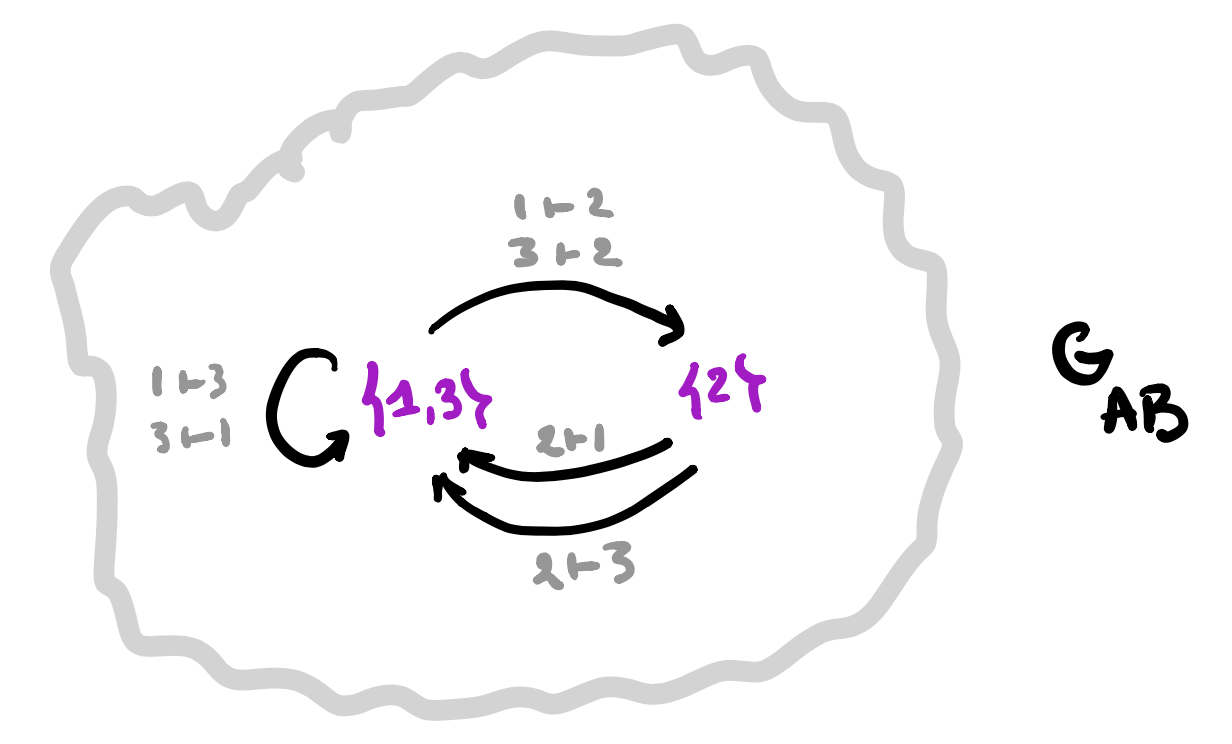 1 ⊢ 2
3 ⊢ 2
1 ⊢ 3
3 ⊢ 1
{1,3}
{2}
2 ⊢ 1
2 ⊢ 3
G
AB